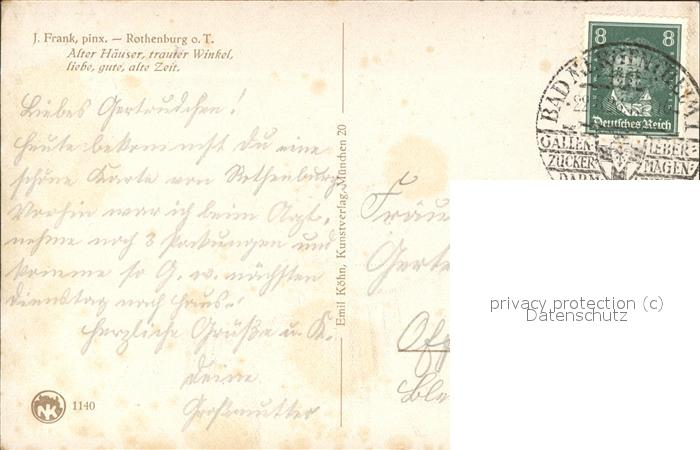 J. Frank, pinx. — Rothenburg o. T.
Alter Häuser, trauter Winkel,
liebe, gute, alte Zeit.
Liebes Gertrudchen!
Heute bekommst du eine
schöne Karte von Rothenburg.
Vorhin war ich beim Arzt,
nehme noch 3 Packungen und
komme so G. w. nächsten
Dienstag nach Haus.
Herzliche Grüße u. K.
Deine
Großmutter
1140
Emil Köhn, Kunstverlag, München 20
8 8
Deutsches Reich
BAD MERGENTHEIM
GALLEN- LEBER-
ZUCKER- MAGEN-
DARM
Fräu
Gertr
Off
Ble
privacy protection (c)
Datenschutz